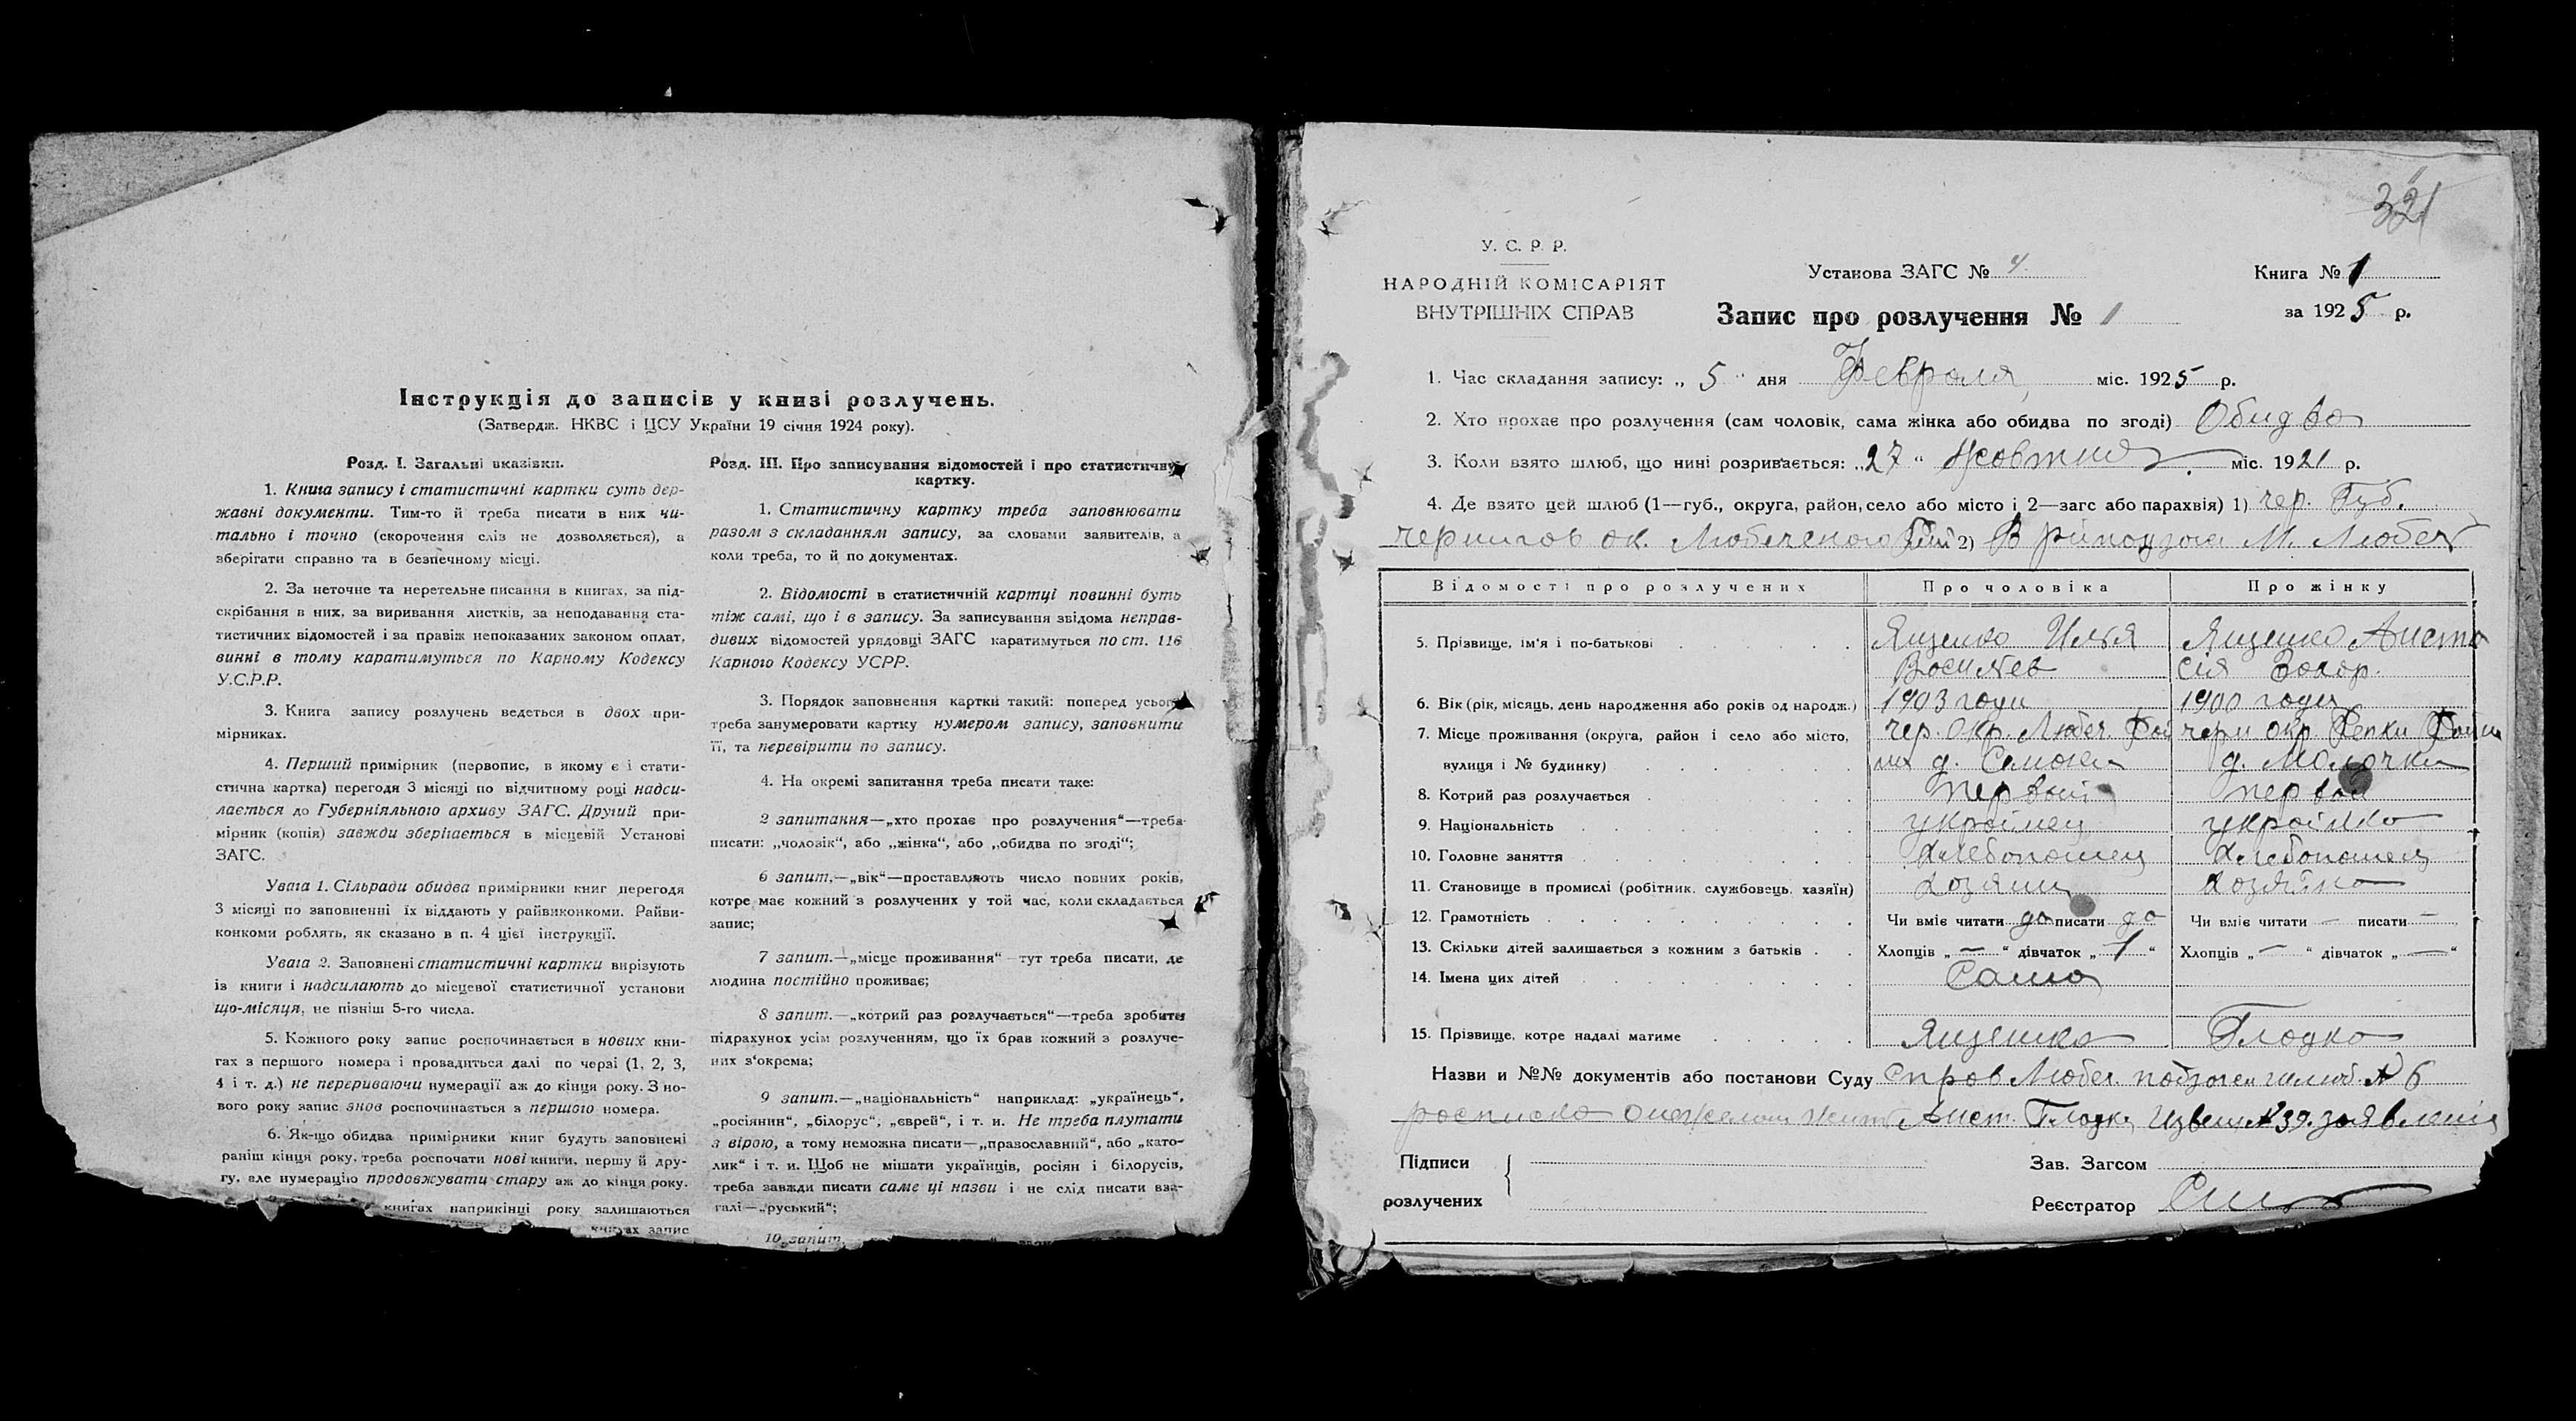 Інструкція до записів у книзі розлучень.
(Затвердж. НКВС і ЦСУ України 19 січня 1924 року).
Розд. I. Загальні вказівки.
1. Книга запису і статистичні картки суть дер-
жавні документи. Тим-то й треба писати в них чи-
тально і точно (скорочення слів не дозволяється), а
зберігати справно та в безпечному місці.
2. За неточне та неретельне писання в книгах, за під-
скрібання в них, за виривання листків, за неподавання ста-
тистичних відомостей і за правіж непоказаних законом оплат,
винні в тому каратимуться по Карному Кодексу
У.С.Р.Р.
3. Книга запису розлучень ведеться в двох при-
мірниках.
4. Перший примірник (первопис, в якому є і стати-
стична картка) перегодя 3 місяці по відчитному році надси-
лається до Губерніяльного архиву ЗАГС. Другий при-
мірник (копія) завжди зберігається в місцевій Установі
ЗАГС.
Увага 1. Сільради обидва примірники книг перегодя
3 місяці по заповненні їх віддають у райвиконкоми. Райви-
конкоми роблять, як сказано в п. 4 цієї інструкції.
Увага 2. Заповнені статистичні картки вирізують
із книги і надсилають до місцевої статистичної установи
що-місяця, не пізніш 5-го числа.
5. Кожного року запис роспочинається в нових кни-
гах з першого номера і провадиться далі по черзі (1, 2, 3,
4 і т. д.) не перериваючи нумерації аж до кінця року. З но-
вого року запис знов роспочинається з першого номера.
6. Як-що обидва примірники книг будуть заповнені
раніш кінця року, треба роспочати нові книги, першу й дру-
гу, але нумерацію продовжувати стару аж до кінця року.
книгах наприкінці року залишаються
книгах запис
Розд. III. Про записування відомостей і про статистичну
картку.
1. Статистичну картку треба заповнювати
разом з складанням запису, за словами заявителів, а
коли треба, то й по документах.
2. Відомості в статистичній картці повинні буть
тіж самі, що і в запису. За записування звідома неправ-
дивих відомостей урядовці ЗАГС каратимуться по ст. 116
Карного Кодексу УСРР.
3. Порядок заповнення картки такий: поперед усього
треба занумеровати картку нумером запису, заповнити
її, та перевірити по запису.
4. На окремі запитання треба писати таке:
2 запитання—„хто прохає про розлучення“—треба
писати: „чоловік“, або „жінка“, або „обидва по згоді“;
6 запит.—„вік“—проставляють число повних років,
котре має кожний з розлучених у той час, коли складається
запис;
7 запит.—„місце проживання“—тут треба писати, де
людина постійно проживає;
8 запит.—„котрий раз розлучається“—треба зробити
підрахунок усім розлученням, що їх брав кожний з розлуче-
них з'окрема;
9 запит.—„національність“ наприклад: „українець“,
„росіянин“, „білорус“, „єврей“, і т. и. Не треба плутати
з вірою, а тому неможна писати—„православний“, або „като-
лик“ і т. и. Щоб не мішати українців, росіян і білорусів,
треба завжди писати саме ці назви і не слід писати вза-
галі—„руський“;
10 запит.
321
У. С. Р. Р.
НАРОДНІЙ КОМІСАРІЯТ
ВНУТРІШНІХ СПРАВ
Установа ЗАГС № 4
Книга № 1
Запис про розлучення № 1
за 1925 р.
1. Час складання запису: „ 5 “ дня Февраля міс. 1925 р.
2. Хто прохає про розлучення (сам чоловік, сама жінка або обидва по згоді) Обидва
3. Коли взято шлюб, що нині розривається: „27“ Жовтня міс. 1921 р.
4. Де взято цей шлюб (1—губ., округа, район, село або місто і 2—загс або парахвія) 1) чер. Губ.
чернигов ок. Любечского 2) В М. Любеч
Відомості про розлучених Про чоловіка Про жінку
5. Прізвище, ім'я і по-батькові Ященко Илья Ященко Анаста
Васильев сія Захар.
6. Вік (рік, місяць, день народження або років од народж.) 1903 года 1900 года
7. Місце проживання (округа, район і село або місто, чер. окр. Любеч. Рай черн окр. Репки Район
вулиця і № будинку) д. д. Малочки
8. Котрий раз розлучається первый первой
9. Національність украінец украінка
10. Головне заняття Хлебопашец Хлебопашец
11. Становище в промислі (робітник, службовець, хазяїн) Хозяин Хозяйка
12. Грамотність Чи вміє читати да писати да Чи вміє читати — писати —
13. Скільки дітей залишається з кожним з батьків Хлопців „—“ дівчаток „1“ Хлопців „—“ дівчаток „—“
14. Імена цих дітей Саша
15. Прізвище, котре надалі матиме Ященко Гладка
Назви и №№ документів або постанови Суду Справ Любеч. шлюб № 6
росписка Анаст. Гладка Извещ № 39. заявления
Підписи
розлучених
Зав. Загсом
Реєстратор